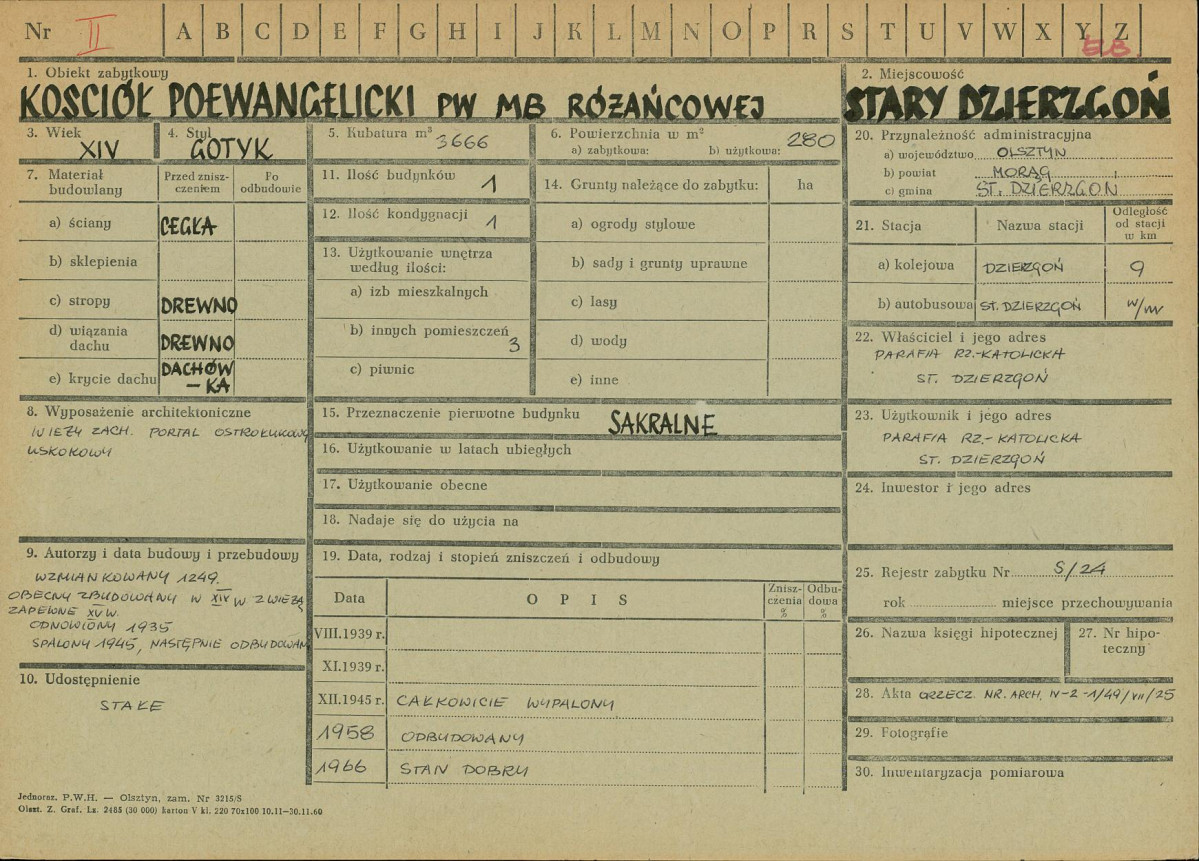 Nr II A B C D E F G H I J K L M N O P R S T U V W X Y Z
EB.
1. Obiekt zabytkowy
KOSCIÓŁ POEWANGELICKI PW MB RÓŻAŃCOWEJ
2. Miejscowość
STARY DZIERZGOŃ
3. Wiek
XIV
4. Styl
GOTYK
5. Kubatura m³
3666
6. Powierzchnia w m²
a) zabytkowa: b) użytkowa: 280
7. Materiał
budowlany
Przed znisz-
czeniem
Po
odbudowie
a) ściany CEGŁA
b) sklepienia
c) stropy DREWNO
d) wiązania
dachu DREWNO
e) krycie dachu DACHÓW
-KA
8. Wyposażenie architektoniczne
W IEŻY ZACH. PORTAL OSTROŁUKOWY
USKOKOWY
9. Autorzy i data budowy i przebudowy
WZMIANKOWANY 1249.
OBECNY ZBUDOWANY W XIV W Z WIEŻĄ
ZAPEWNE XV W.
ODNOWIONY 1935
SPALONY 1945, NASTĘPNIE ODBUDOWAN
10. Udostępnienie
STAŁE
11. Ilość budynków 1
12. Ilość kondygnacji 1
13. Użytkowanie wnętrza
według ilości:
a) izb mieszkalnych
b) innych pomieszczeń
3
c) piwnic
14. Grunty należące do zabytku: ha
a) ogrody stylowe
b) sady i grunty uprawne
c) lasy
d) wody
e) inne
15. Przeznaczenie pierwotne budynku SAKRALNE
16. Użytkowanie w latach ubiegłych
17. Użytkowanie obecne
18. Nadaje się do użycia na
19. Data, rodzaj i stopień zniszczeń i odbudowy
Data O P I S Znisz-
czenia
% Odbu-
dowa
%
VIII.1939 r.
XI.1939 r.
XII.1945 r. CAŁKOWICIE WYPALONY
1958 ODBUDOWANY
1966 STAN DOBRY
20. Przynależność administracyjna
a) województwo OLSZTYN
b) powiat MORĄG
c) gmina ST. DZIERZGOŃ
21. Stacja Nazwa stacji Odległość
od stacji
w km
a) kolejowa DZIERZGOŃ 9
b) autobusowa ST. DZIERZGOŃ w/m
22. Właściciel i jego adres
PARAFIA RZ.-KATOLICKA
ST. DZIERZGOŃ
23. Użytkownik i jego adres
PARAFIA RZ.-KATOLICKA
ST. DZIERZGOŃ
24. Inwestor i jego adres
25. Rejestr zabytku Nr S/24
rok miejsce przechowywania
26. Nazwa księgi hipotecznej
27. Nr hipo-
teczny
28. Akta ORZECZ. NR. ARCH. IV-2-1/49/VII/25
29. Fotografie
30. Inwentaryzacja pomiarowa
Jednoraz. P.W.H. — Olsztyn, zam. Nr 3215/S
Olszt. Z. Graf. Lz. 2485 (30 000) karton V kl. 220 70x100 10.11—30.11.60